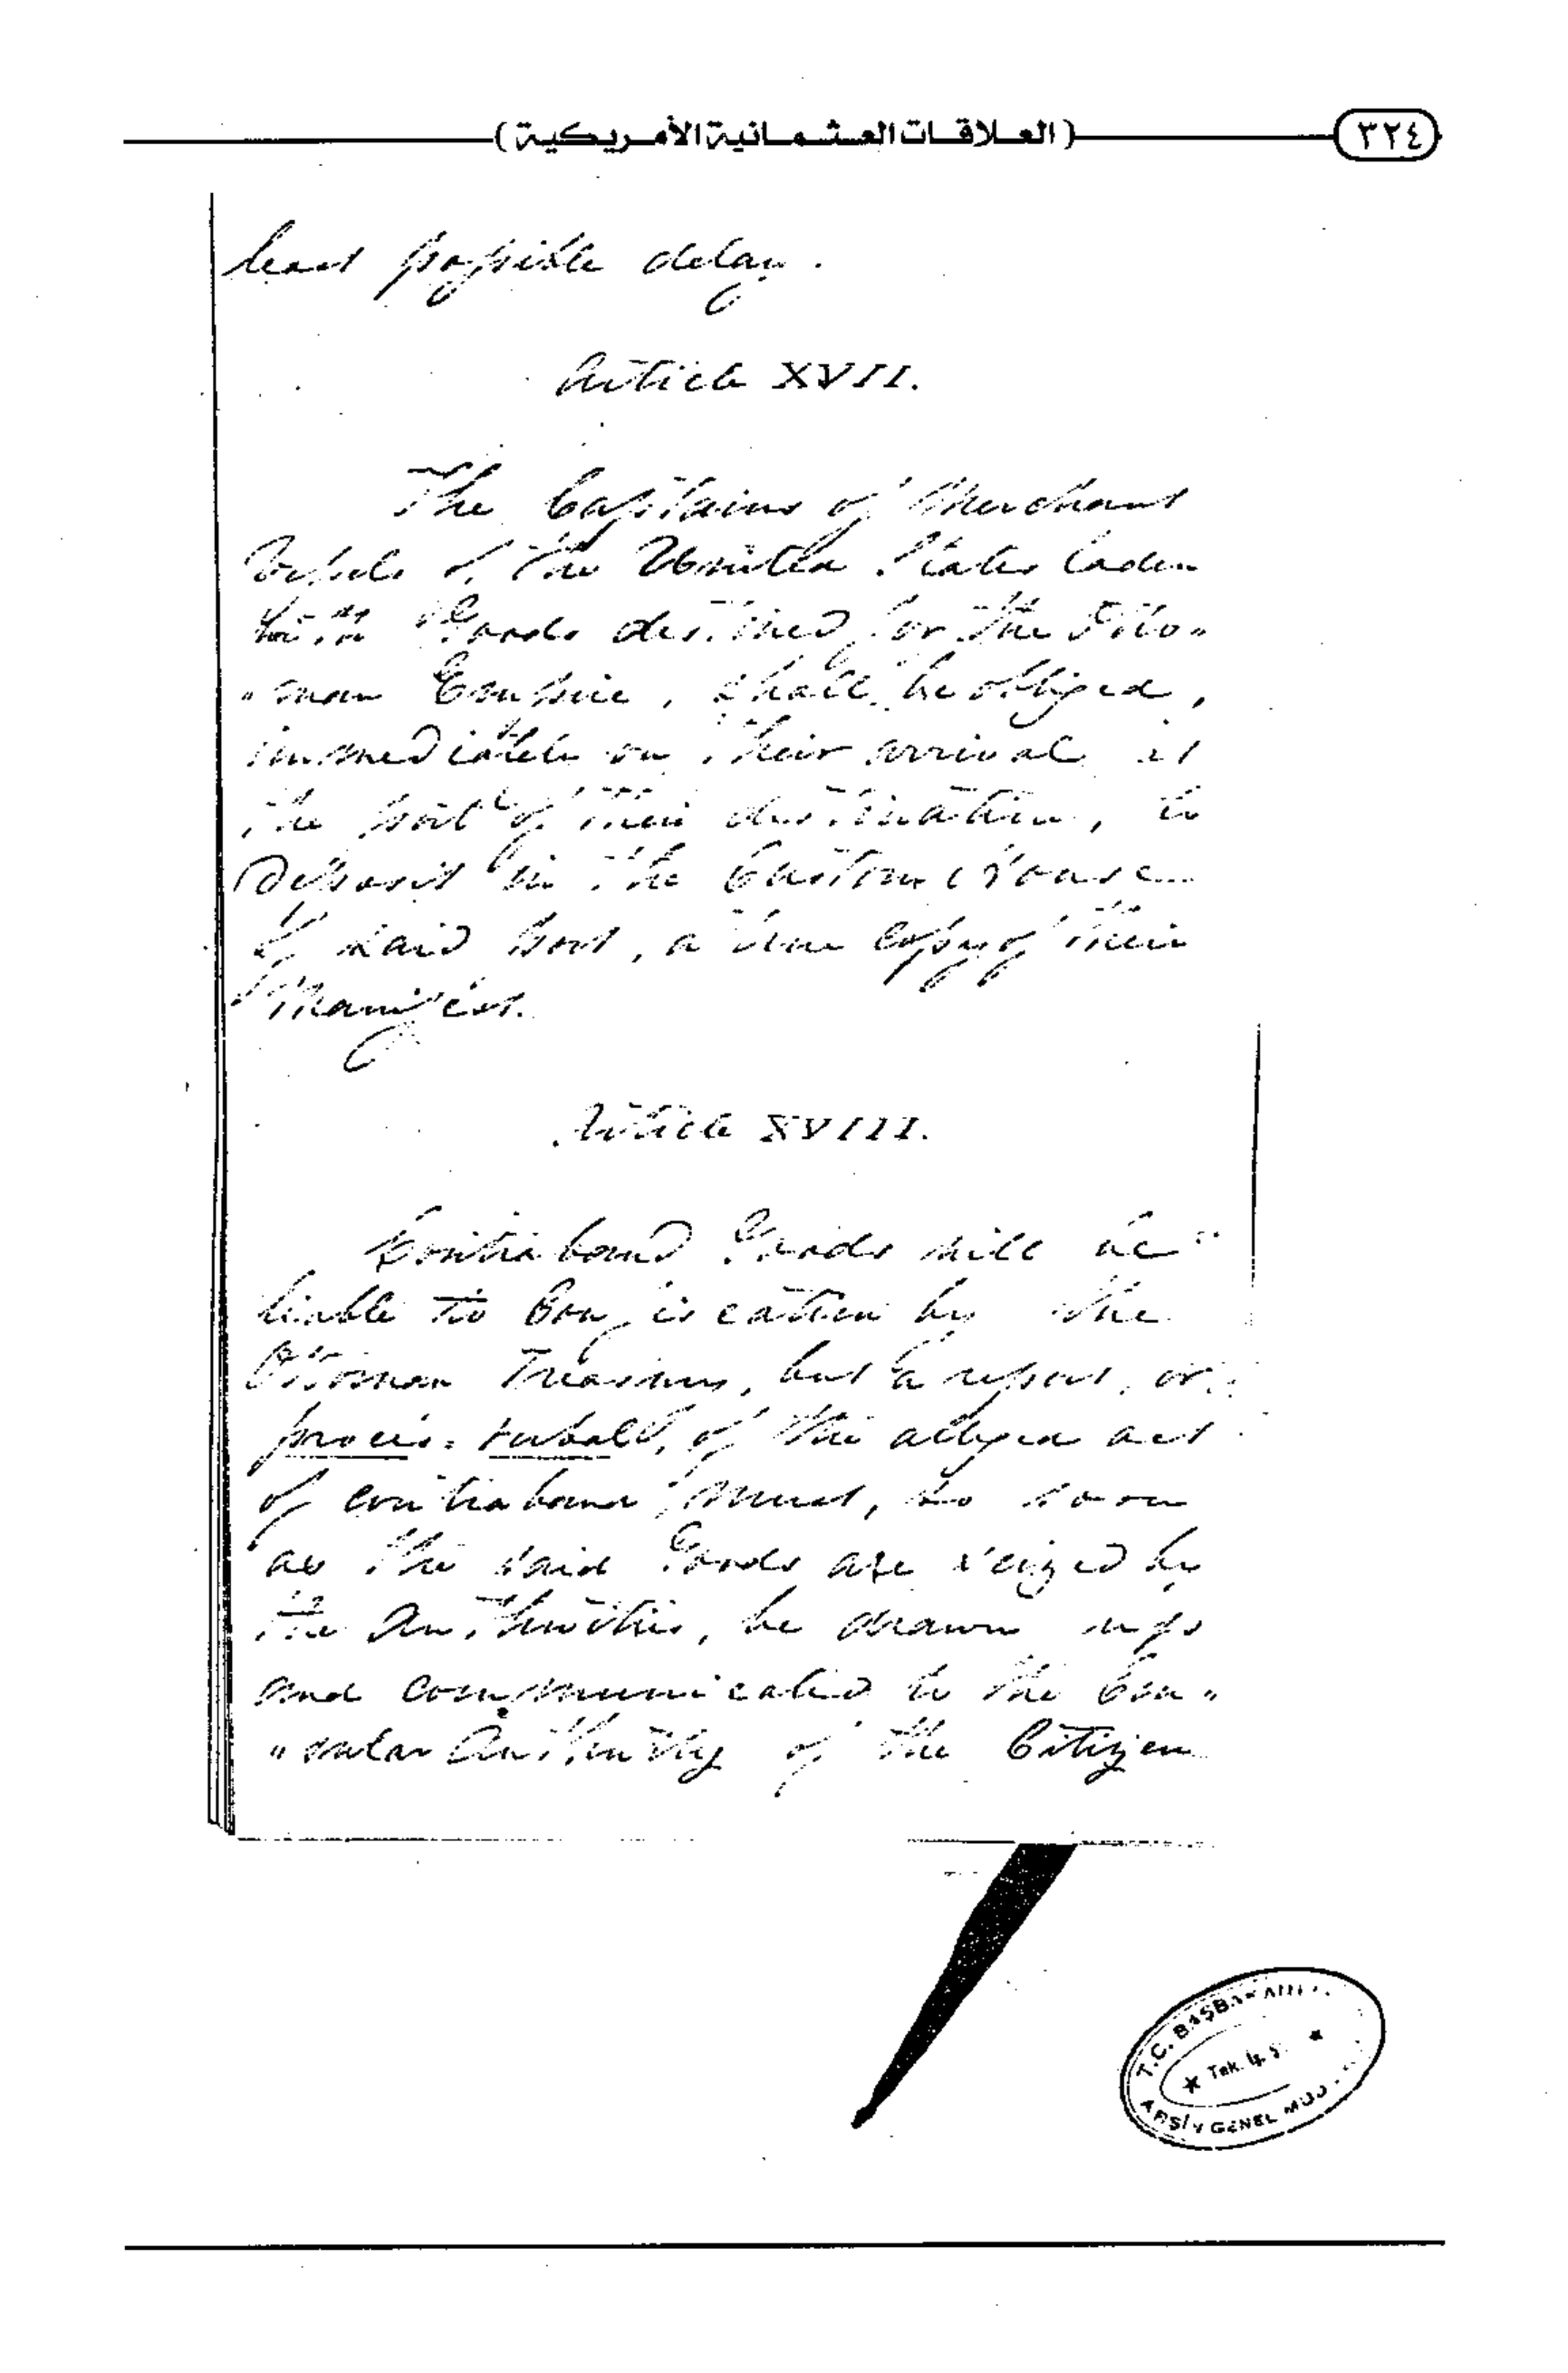 (العلاقات العثمانية الأمريكية)
٣٢٤
least possible delay.
Article XVII.
The Captains of Merchant
Vessels of the United States laden
with Goods destined for the Otto„
„man Empire, shall be obliged,
immediately on their arrival at
the port of their destination, to
deposit in the Custom House
of said port, a true copy of their
Manifest.
Article XVIII.
Contraband Goods will be
liable to Confiscation by the
Ottoman Treasury, but a report, or
procès-verbal, of the alleged act
of contraband must, so soon
as the said Goods are seized by
the Authorities, be drawn up
and communicated to the Con„
„sular Authority of the Citizen
T.C. BAŞBAKANLIK
★ Tek. İş. Ş. ★
ARŞİV GENEL MÜD